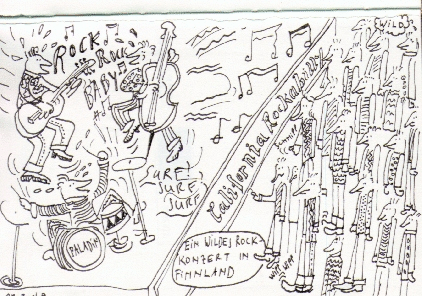 ROCK
ROCK
BABY!
WILD
California Rockabilly
SURF!
SURF
SURF
PALADIN
EIN WILDES ROCK-
KONZERT IN
FINNLAND
WIPP WIPP